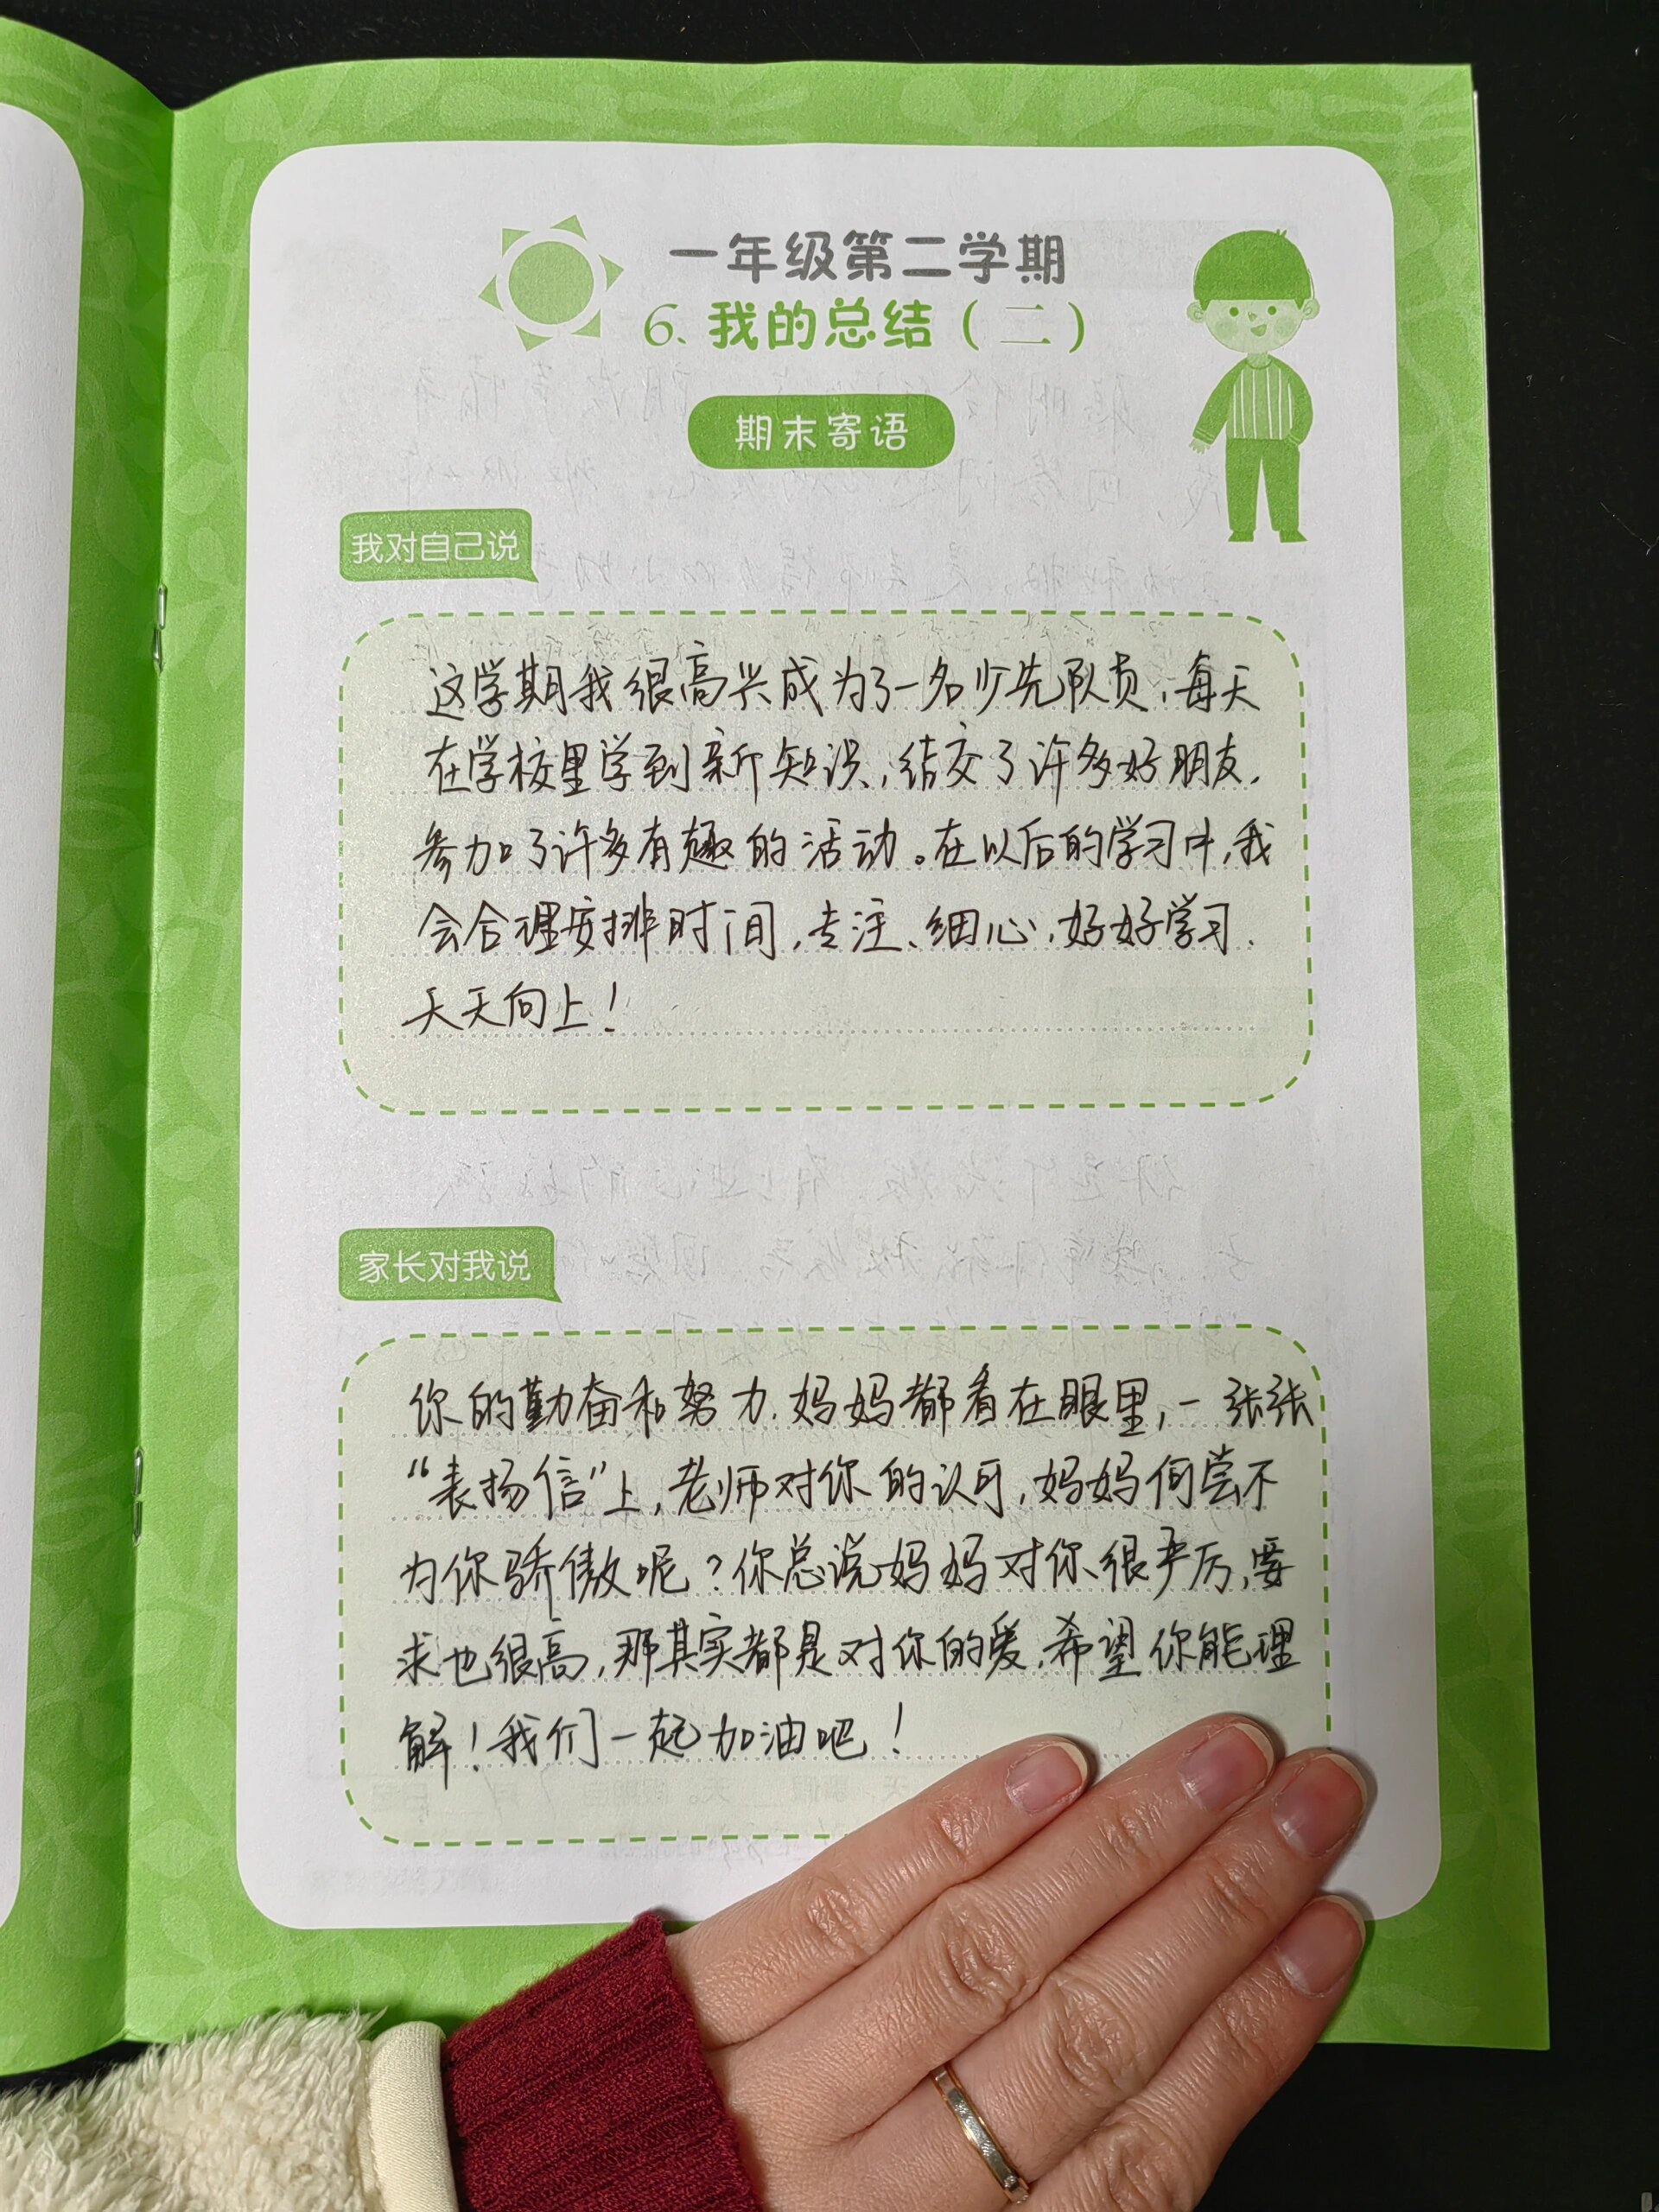 一年级第二学期
6. 我的总结（二）
期末寄语
我对自己说
这学期我很高兴成为了一名少先队员，每天
在学校里学到新知识，结交了许多好朋友，
参加了许多有趣的活动。在以后的学习中，我
会合理安排时间，专注、细心，好好学习、
天天向上！
家长对我说
你的勤奋和努力，妈妈都看在眼里，一张张
“表扬信”上，老师对你的认可，妈妈何尝不
为你骄傲呢？你总说妈妈对你很严厉，要
求也很高，那其实都是对你的爱，希望你能理
解！我们一起加油吧！